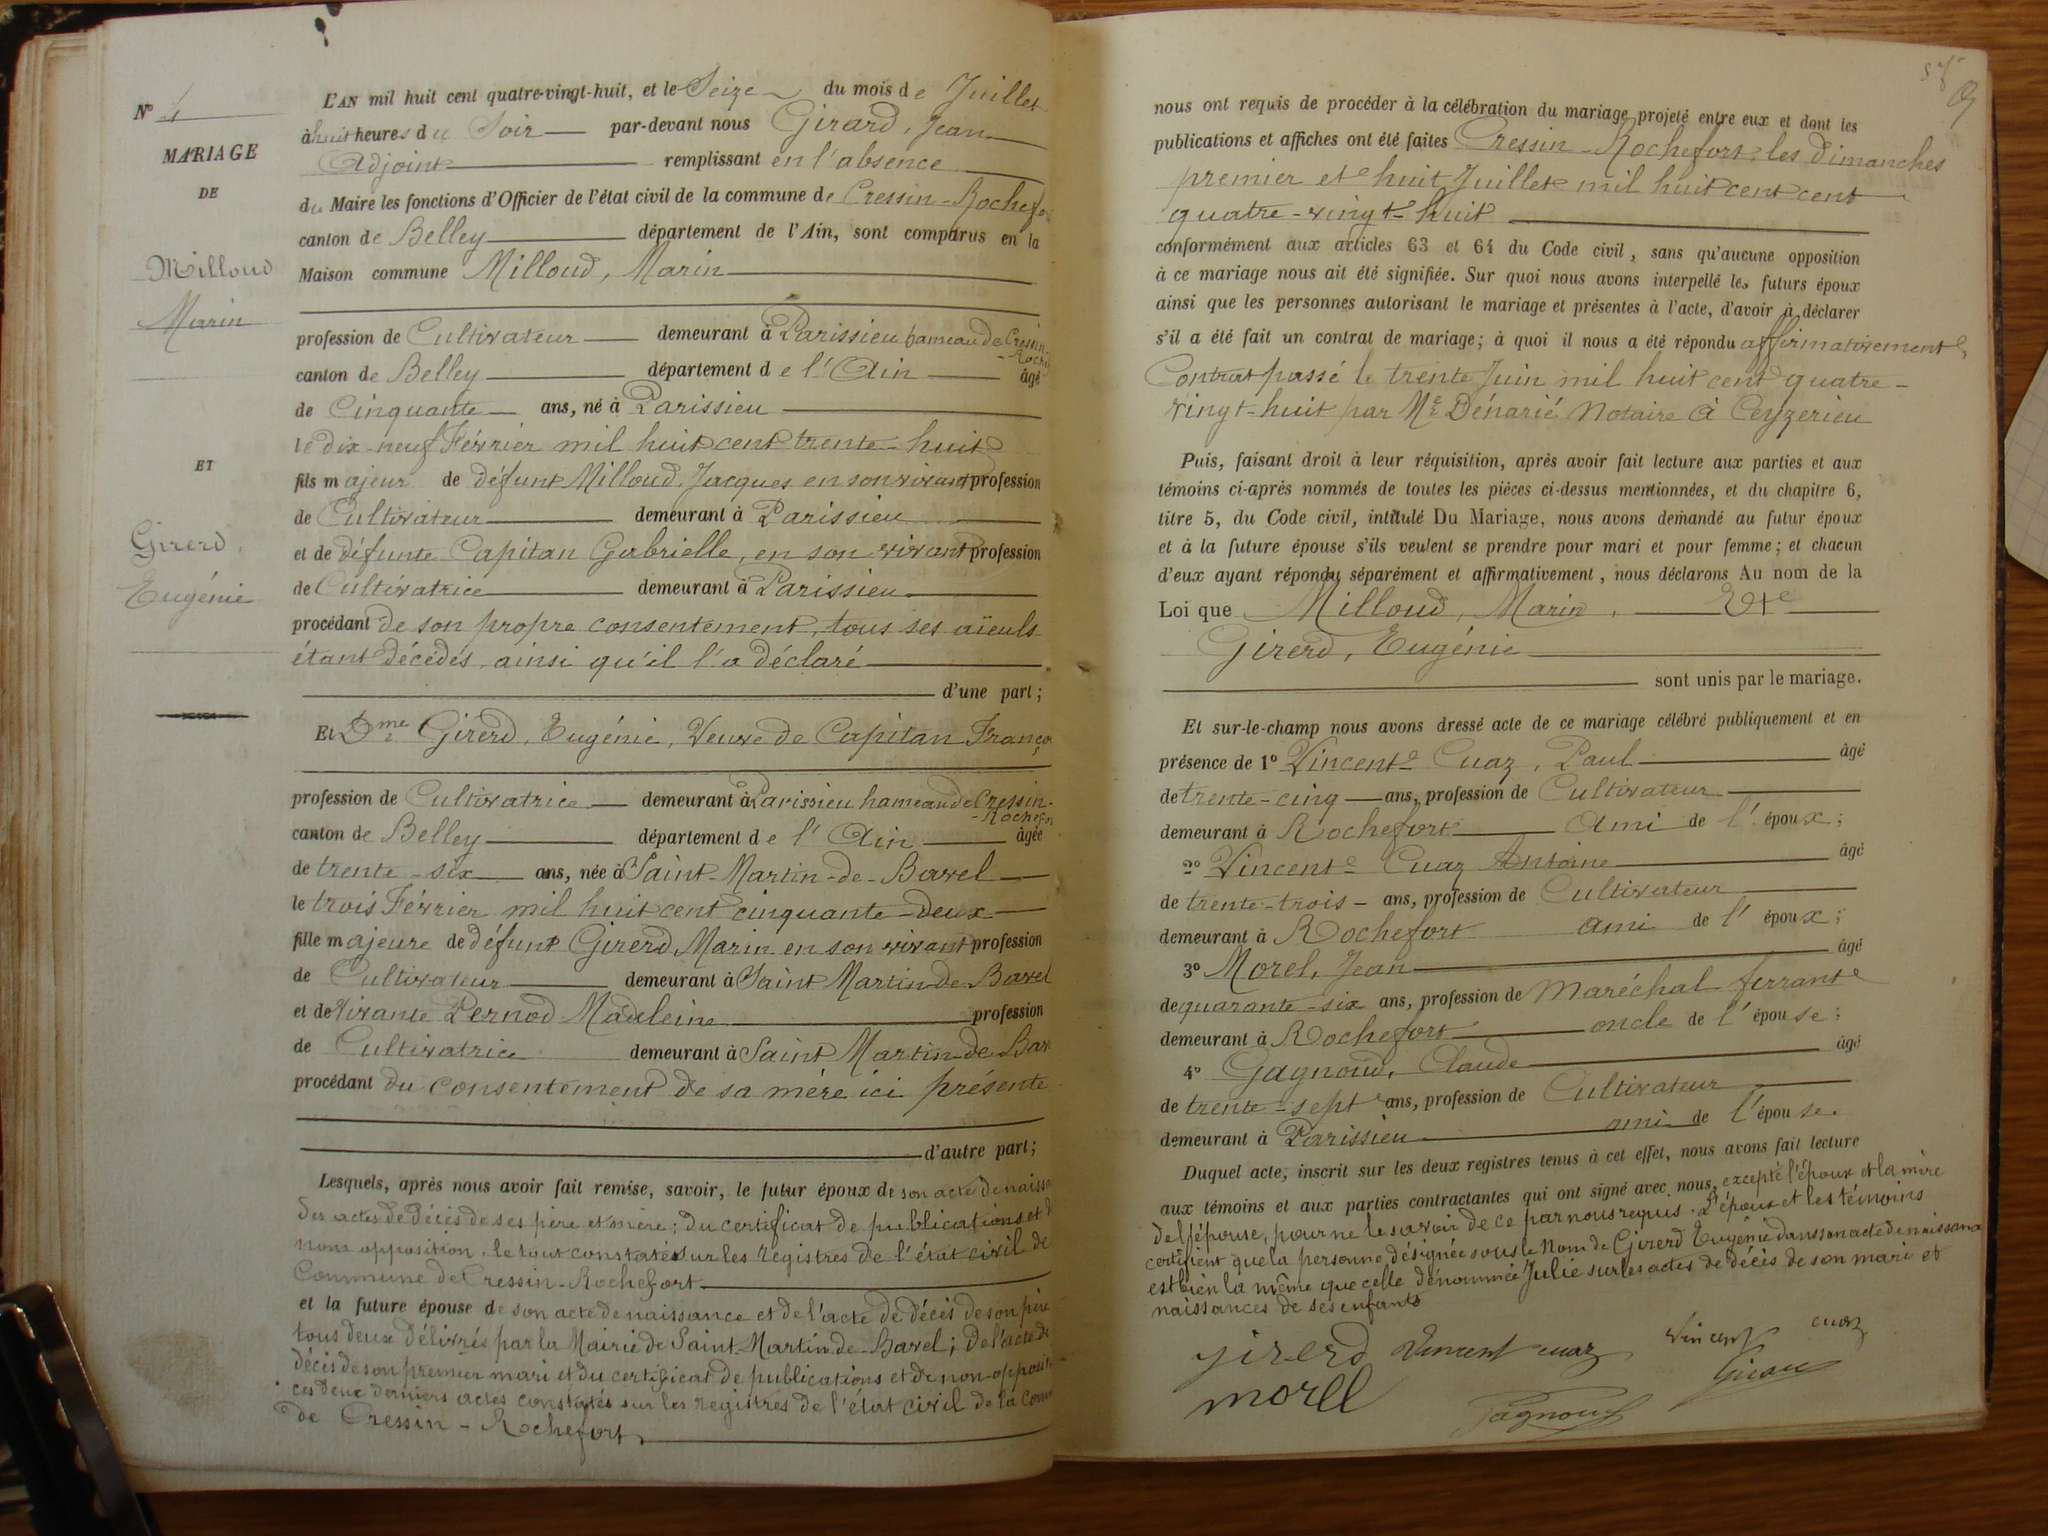 N° 4
MARIAGE
DE
Milloud
Marin
ET
Girerd,
Eugénie
L'AN mil huit cent quatre-vingt-huit, et le Seize du mois de Juillet
à huit heures du Soir par-devant nous Girard, Jean
Adjoint remplissant en l'absence
du Maire les fonctions d'Officier de l'état civil de la commune de Cressin-Rochefo
canton de Belley département de l'Ain, sont comparus en la
Maison commune Milloud, Marin
profession de Cultivateur demeurant à Parissieu hameau de Cressin-
-Roche
canton de Belley département de l'Ain âgé
de Cinquante ans, né à Parissieu
le dix-neuf Février mil huit cent trente-huit
fils majeur de défunt Milloud, Jacques en son vivant profession
de Cultivateur demeurant à Parissieu
et de défunte Capitan Gabrielle, en son vivant profession
de Cultivatrice demeurant à Parissieu
procédant de son propre consentement, tous ses aïeuls
étant décédés, ainsi qu'il l'a déclaré
d'une part ;
Et Dme Girerd, Eugénie, Veuve de Capitan Franço
s
profession de Cultivatrice demeurant à Parissieu hameau de Cressin-
-Rochefor
canton de Belley département de l'Ain âgée
de trente-six ans, née à Saint-Martin-de-Bavel
le trois Février mil huit cent cinquante-deux
fille majeure de défunt Girerd, Marin en son vivant profession
de Cultivateur demeurant à Saint Martin de Bavel
et de vivante Pernod Madeleine profession
de Cultivatrice demeurant à Saint Martin de Bav
procédant du consentement de sa mère ici présente
d'autre part ;
Lesquels, après nous avoir fait remise, savoir, le futur époux de son acte de naiss
des actes de décès de ses père et mère ; du certificat de publications et d
nonx opposition, le tout constatés sur les registres de l'état civil de
Commune de Cressin-Rochefort
et la future épouse de son acte de naissance et de l'acte de décès de son père
tous deux délivrés par la Mairie de Saint-Martin-de-Bavel ; de l'acte de
décès de son premier mari et du certificat de publications et de non-opposit
ces deux derniers actes constatés sur les registres de l'état civil de la Com
de Cressin-Rochefort
nous ont requis de procéder à la célébration du mariage projeté entre eux et dont les
publications et affiches ont été faites Cressin-Rochefort, les dimanches
premier et huit Juillet mil huit cent cent
quatre-vingt-huit
conformément aux articles 63 et 64 du Code civil, sans qu'aucune opposition
à ce mariage nous ait été signifiée. Sur quoi nous avons interpellé les futurs époux
ainsi que les personnes autorisant le mariage et présentes à l'acte, d'avoir à déclarer
s'il a été fait un contrat de mariage ; à quoi il nous a été répondu affirmativement,
Contrat passé le trente Juin mil huit cent quatre-
vingt-huit par Me Dénarié Notaire à Ceyzerieu
Puis, faisant droit à leur réquisition, après avoir fait lecture aux parties et aux
témoins ci-après nommés de toutes les pièces ci-dessus mentionnées, et du chapitre 6,
titre 5, du Code civil, intitulé Du Mariage, nous avons demandé au futur époux
et à la future épouse s'ils veulent se prendre pour mari et pour femme ; et chacun
d'eux ayant répondu séparément et affirmativement, nous déclarons Au nom de la
Loi que Milloud, Marin, Et
Girerd, Eugénie
sont unis par le mariage.
Et sur-le-champ nous avons dressé acte de ce mariage célébré publiquement et en
présence de 1° Vincent Cuaz, Paul âgé
de trente-cinq ans, profession de Cultivateur
demeurant à Rochefort Ami de l'époux ;
2° Vincent Cuaz Antoine âgé
de trente-trois ans, profession de Cultivateur
demeurant à Rochefort ami de l'époux ;
3° Morel, Jean âgé
de quarante-six ans, profession de Maréchal ferrant
demeurant à Rochefort oncle de l'épouse ;
4° Gagnoud, Claude âgé
de trente-sept ans, profession de Cultivateur
demeurant à Parissieu ami de l'épouse.
Duquel acte, inscrit sur les deux registres tenus à cet effet, nous avons fait lecture
aux témoins et aux parties contractantes qui ont signé avec nous, excepté l'époux et la mère
de l'épouse, pour ne le savoir de ce par nous requis. L'époux et les témoins
certifient que la personne désignée sous le Nom de Girerd Eugénie dans son acte de naissance
est bien la même que celle dénommée Julie sur les actes de décès de son mari et
naissances de ses enfants
girerd Vincent cuaz Vincent cuaz
morel Gagnoud Girard